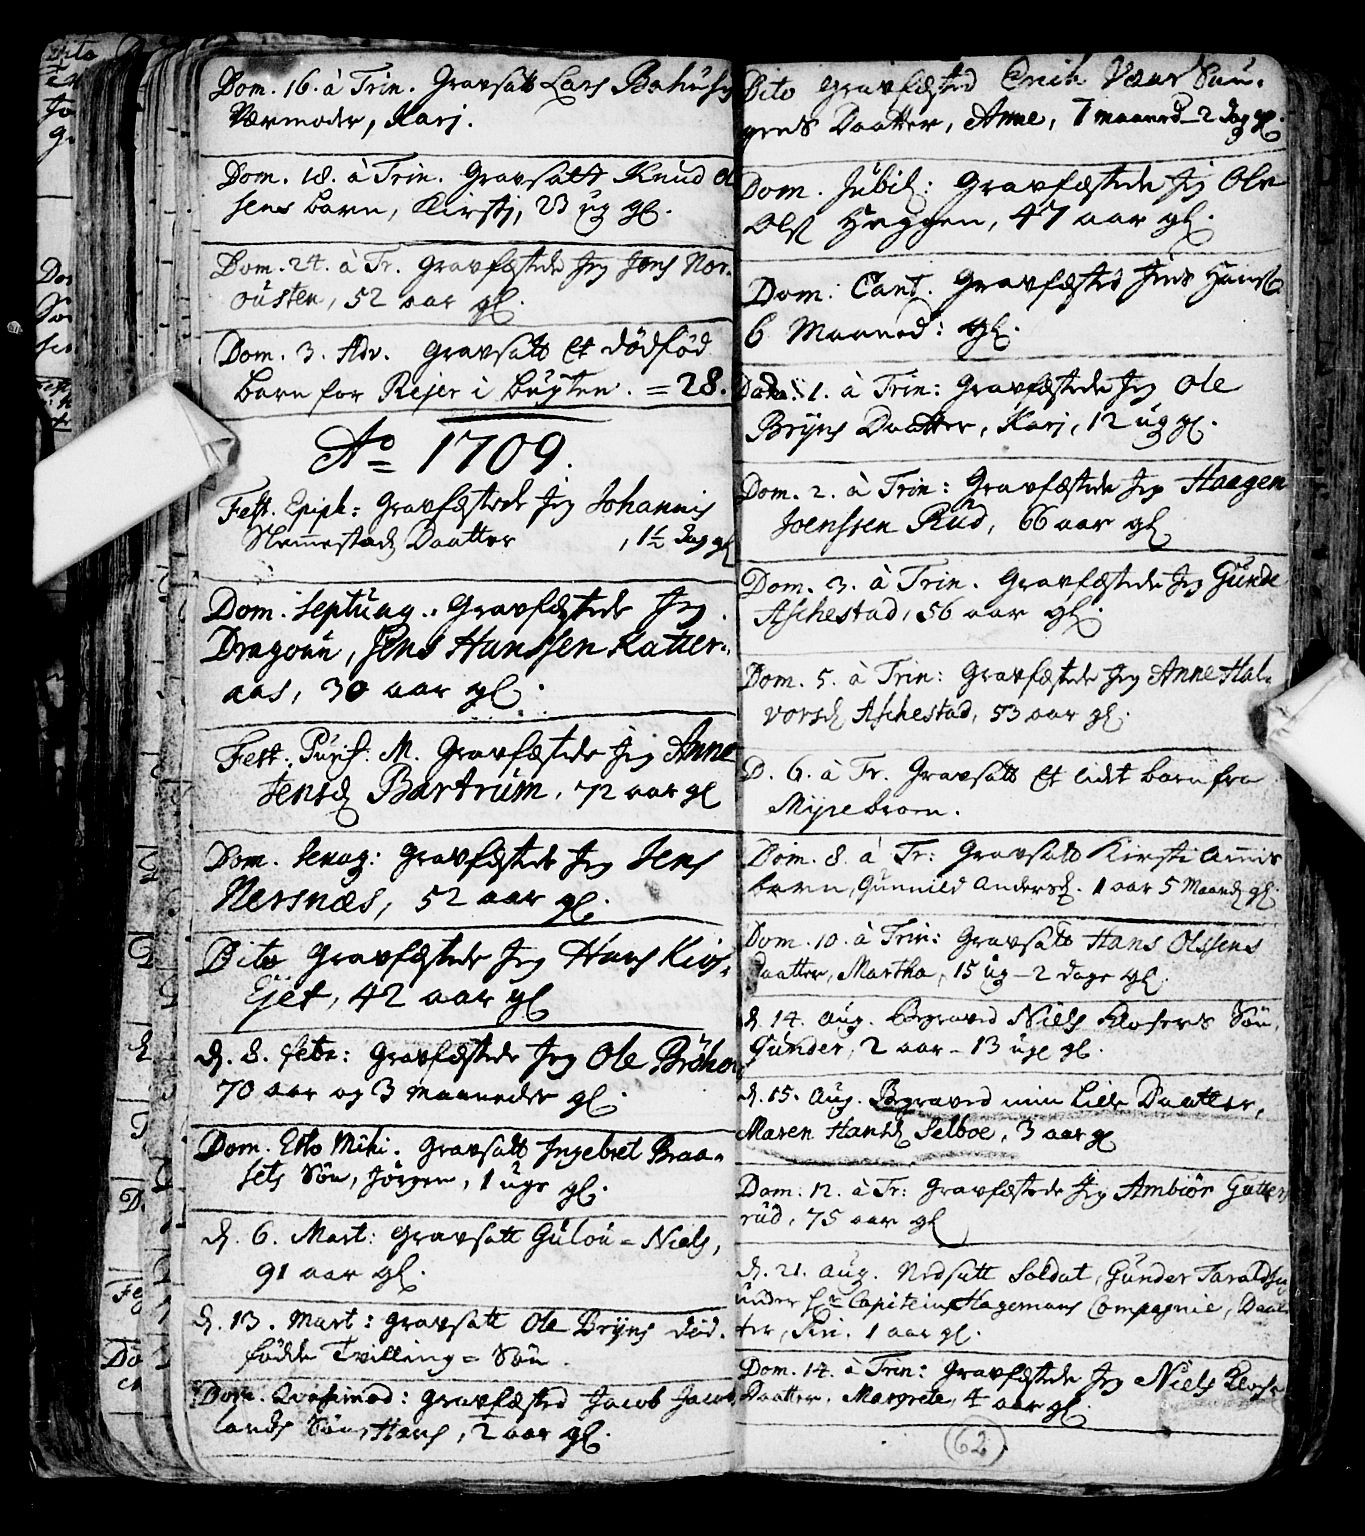 Dom. 16. à Trin. Gravsatt Lars Bahus
Værmoder, Karj.
Dom. 18. à Trin. Gravsatt Knud Ol
sens barn, Kirstj, 23 ug gl.
Dom. 24. à Tr. Gravfæstede Jeg Jens Nor-
ousten, 52 aar gl.
Dom. 3. Adv. Gravsatt et dödföd
barn for Rejer i bugten. = 28.
Ao 1709.
Fest. Epiph: Gravfæstede Jeg Johannis
Slemestad Daatter , 1½ dag gl
Dom. Septuag. Gravfæstede Jeg
Dragoun, Jens Hanssen Katter-
aas, 30 aar gl.
Fest. Purif. M. Gravfæstede Jeg Anne
Jensd Bartrum, 72 aar gl
Dom. Sexag: Gravfæstede Jeg Jens
Nersnæs, 52 aar gl.
Dito Gravfæstede Jeg Hans Kirs-
Ejet, 42 aar gl
d. 8. Febr: Gravfæstede Jeg Ole Bröken
70 aar og 3 maaneder gl.
Dom. Esto Mihi. Gravsatt Ingebret Braa-
sets Sön, Jörgen, 1 uge gl.
d. 6. Mart: Gravsatt Gulou-Niels,
91 aar gl.
d. 13. Mart: Gravsatt Ole Bryns död-
födde Tvilling-Sön.
Dom. Quasimod: Gravfæsted Jacob Jacob
lands Sön, Hans, 2 aar gl.
Dito Gravfæsted Erich Veas Sau-
grens Daatter, Anne, 7 maaned_ 2 dag gl.
Dom. Jubil: Gravfæstede Jeg Ole
Ols Heggen, 47 aar gl.
Dom: Cant. Gravfæsted Jens Hans
6 Maaned: gl.
Dom: 1. à Trin: Gravfæstede Jeg Ole
Bryns Daatter, Karj, 12 ug gl.
Dom. 2. à Trin: Gravfæstede Jeg Haagen
Joenssen Rud, 66 aar gl
Dom. 3. à Trin. Gravfæstede Jeg Gunde
Aschestad, 56 aar gl.
Dom. 5. à Trin: Gravfæstede Jeg Anne Hal-
vorsd Aschestad, 53 aar gl.
D. 6. à Tr. Gravsatt et lidt barn fra
Myrebraaen.
Dom. 8. à Tr: Gravsatt Kirsti Annis
barn, Gunnild Andersd. 1 aar 5 Maand gl.
Dom. 10. à Trin: Gravsatt Hans Olssens
Daatter, Martha, 15 ug_ 2 dage gl.
d. 14. Aug. Begraved Niels Klosers Sön,
Gunder, 2 aar_ 13 uge gl.
d. 15. Aug. Begraved min Lille Daatter,
Maren Hansd Selboe, 3 aar gl
Dom: 12. à Tr: Gravfæstede Jeg Ambiör Gutte
rud, 75 aar gl
d. 21. Aug. Nedsatt Soldat, Gunder Taraldsen
under Hr Capiteins Hagemans Compagnie, Daat-
ter, Siri. 1 aar gl.
Dom. 14. à Trin: Gravfæstede Jeg Niels Klose
Daatter, Margrete, 4 aar gl.
62